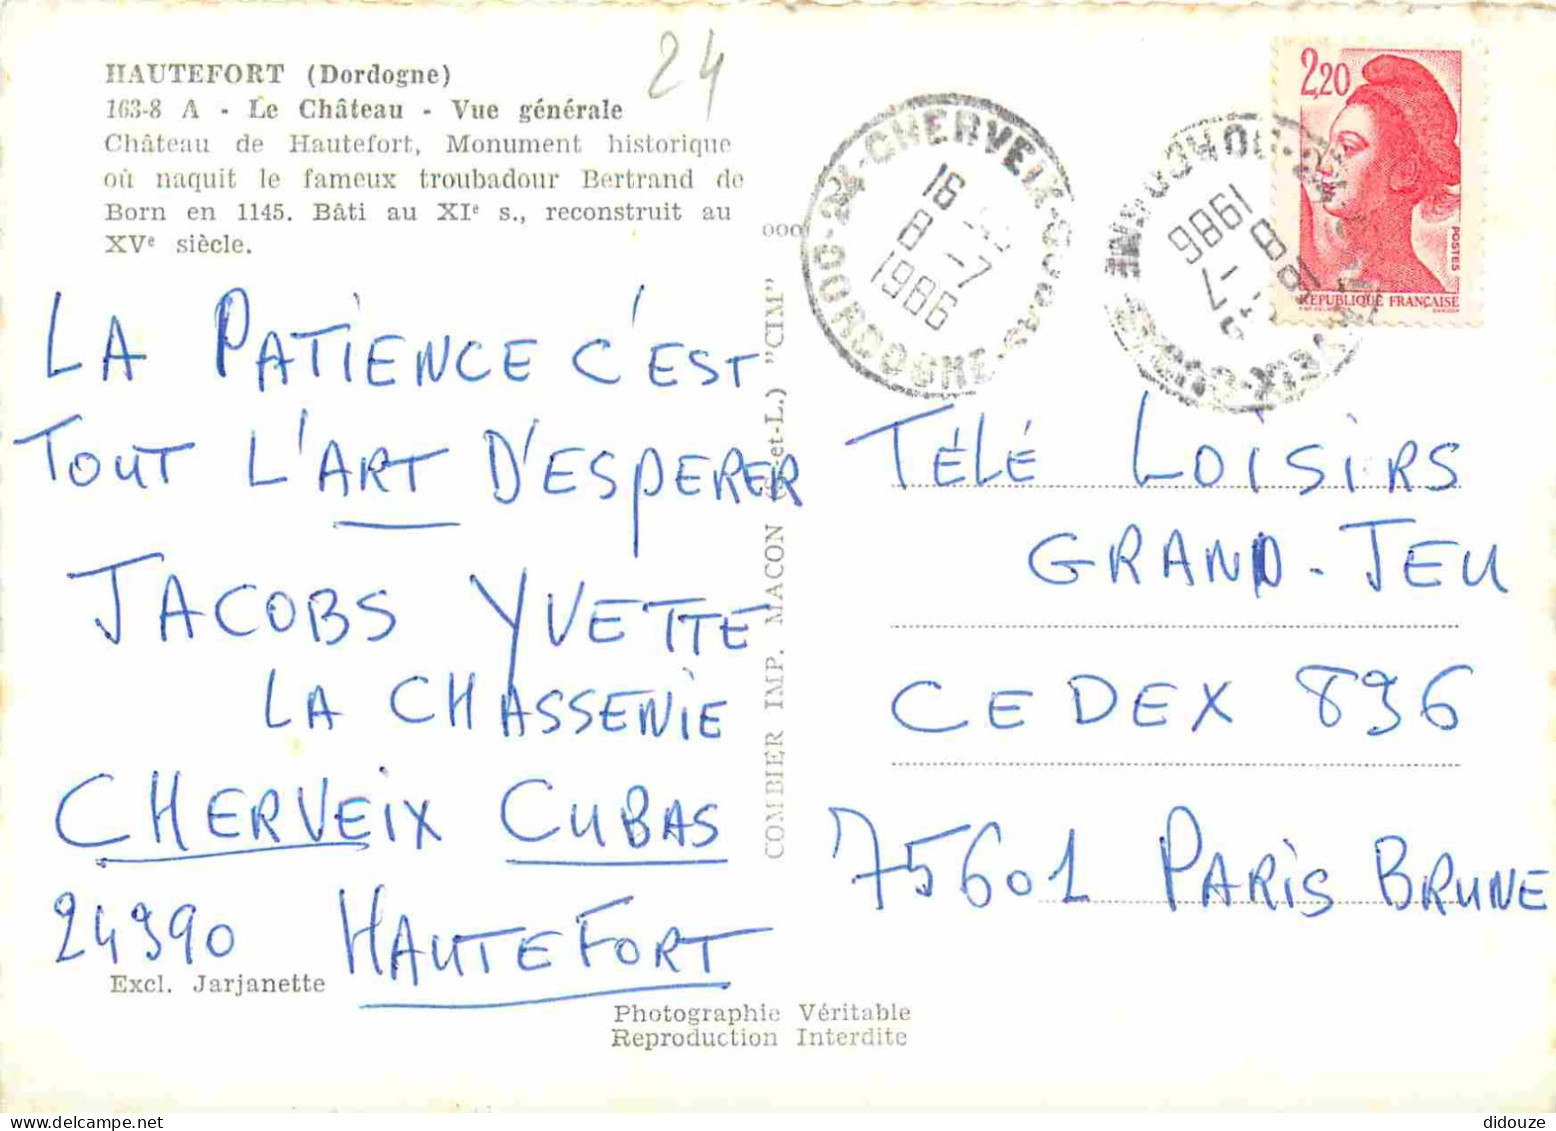 24
HAUTEFORT (Dordogne)
163-8 A - Le Château - Vue générale
Château de Hautefort, Monument historique
où naquit le fameux troubadour Bertrand de
Born en 1145. Bâti au XIe s., reconstruit au
XVe siècle.
LA PATIENCE C'EST
TOUT L'ART D'ESPERER
JACOBS YVETTE
LA CHASSENIE
CHERVEIX CUBAS
24390 HAUTEFORT
Excl. Jarjanette
Photographie Véritable
Reproduction Interdite
COMBIER IMP. MACON (S.-et-L.) "CIM"
24-CHERVEIX-CUBAS
DORDOGNE
16
8-7
1986
18
8-7
1986
2,20
POSTES
REPUBLIQUE FRANÇAISE
TÉLÉ LOISIRS
GRAND-JEU
CEDEX 896
75601 PARIS BRUNE
didouze